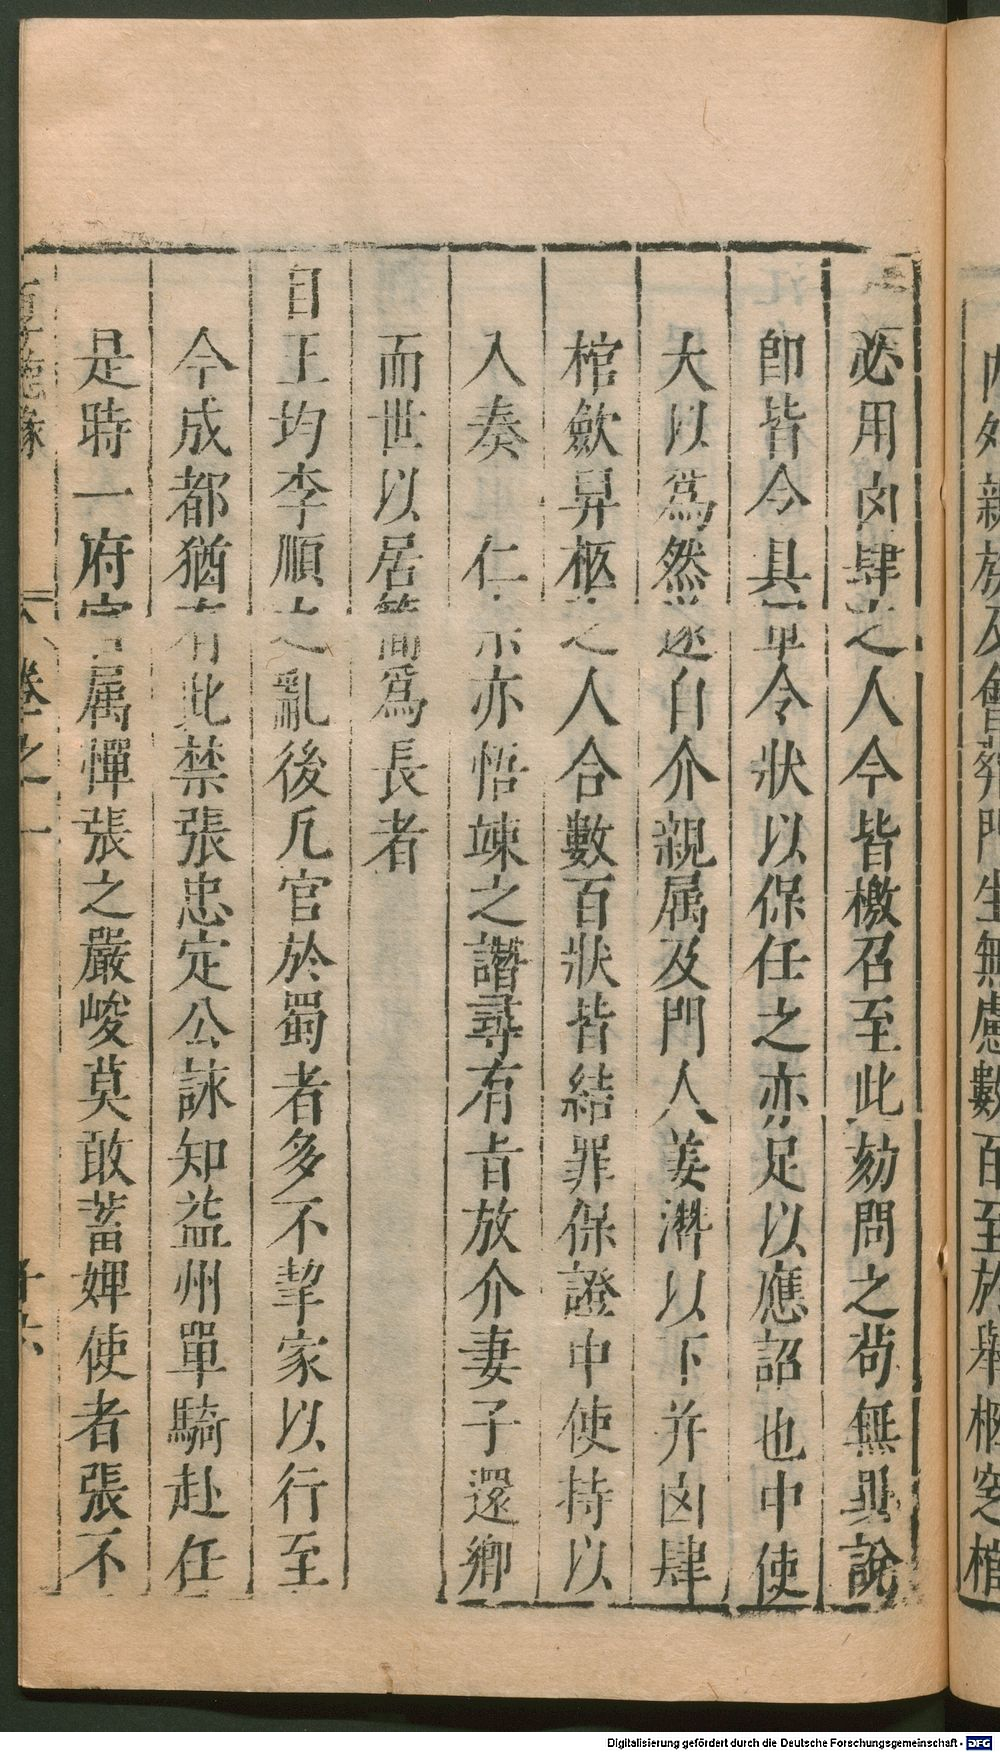 必用凶肆之人今皆檄召至此劾問之苟無異說
即皆令具軍令狀以保任之亦足以應詔也中使
大以爲然遂自介親属及門人姜潛以下并凶肆
棺斂舁柩之人合數百狀皆結罪保證中使持以
入奏仁宗亦悟竦之譖尋有旨放介妻子還鄉
而世以居簡爲長者
自王均李順之亂後凡官於蜀者多不挈家以行至
今成都猶有此禁張忠定公詠知益州單騎赴任
是時一府官属憚張之嚴峻莫敢蓄婢使者張不
厚德錄 卷之一 十六
內外親族及會葬門生無慮數百至於舉柩窆棺
Digitalisierung gefördert durch die Deutsche Forschungsgemeinschaft - DFG